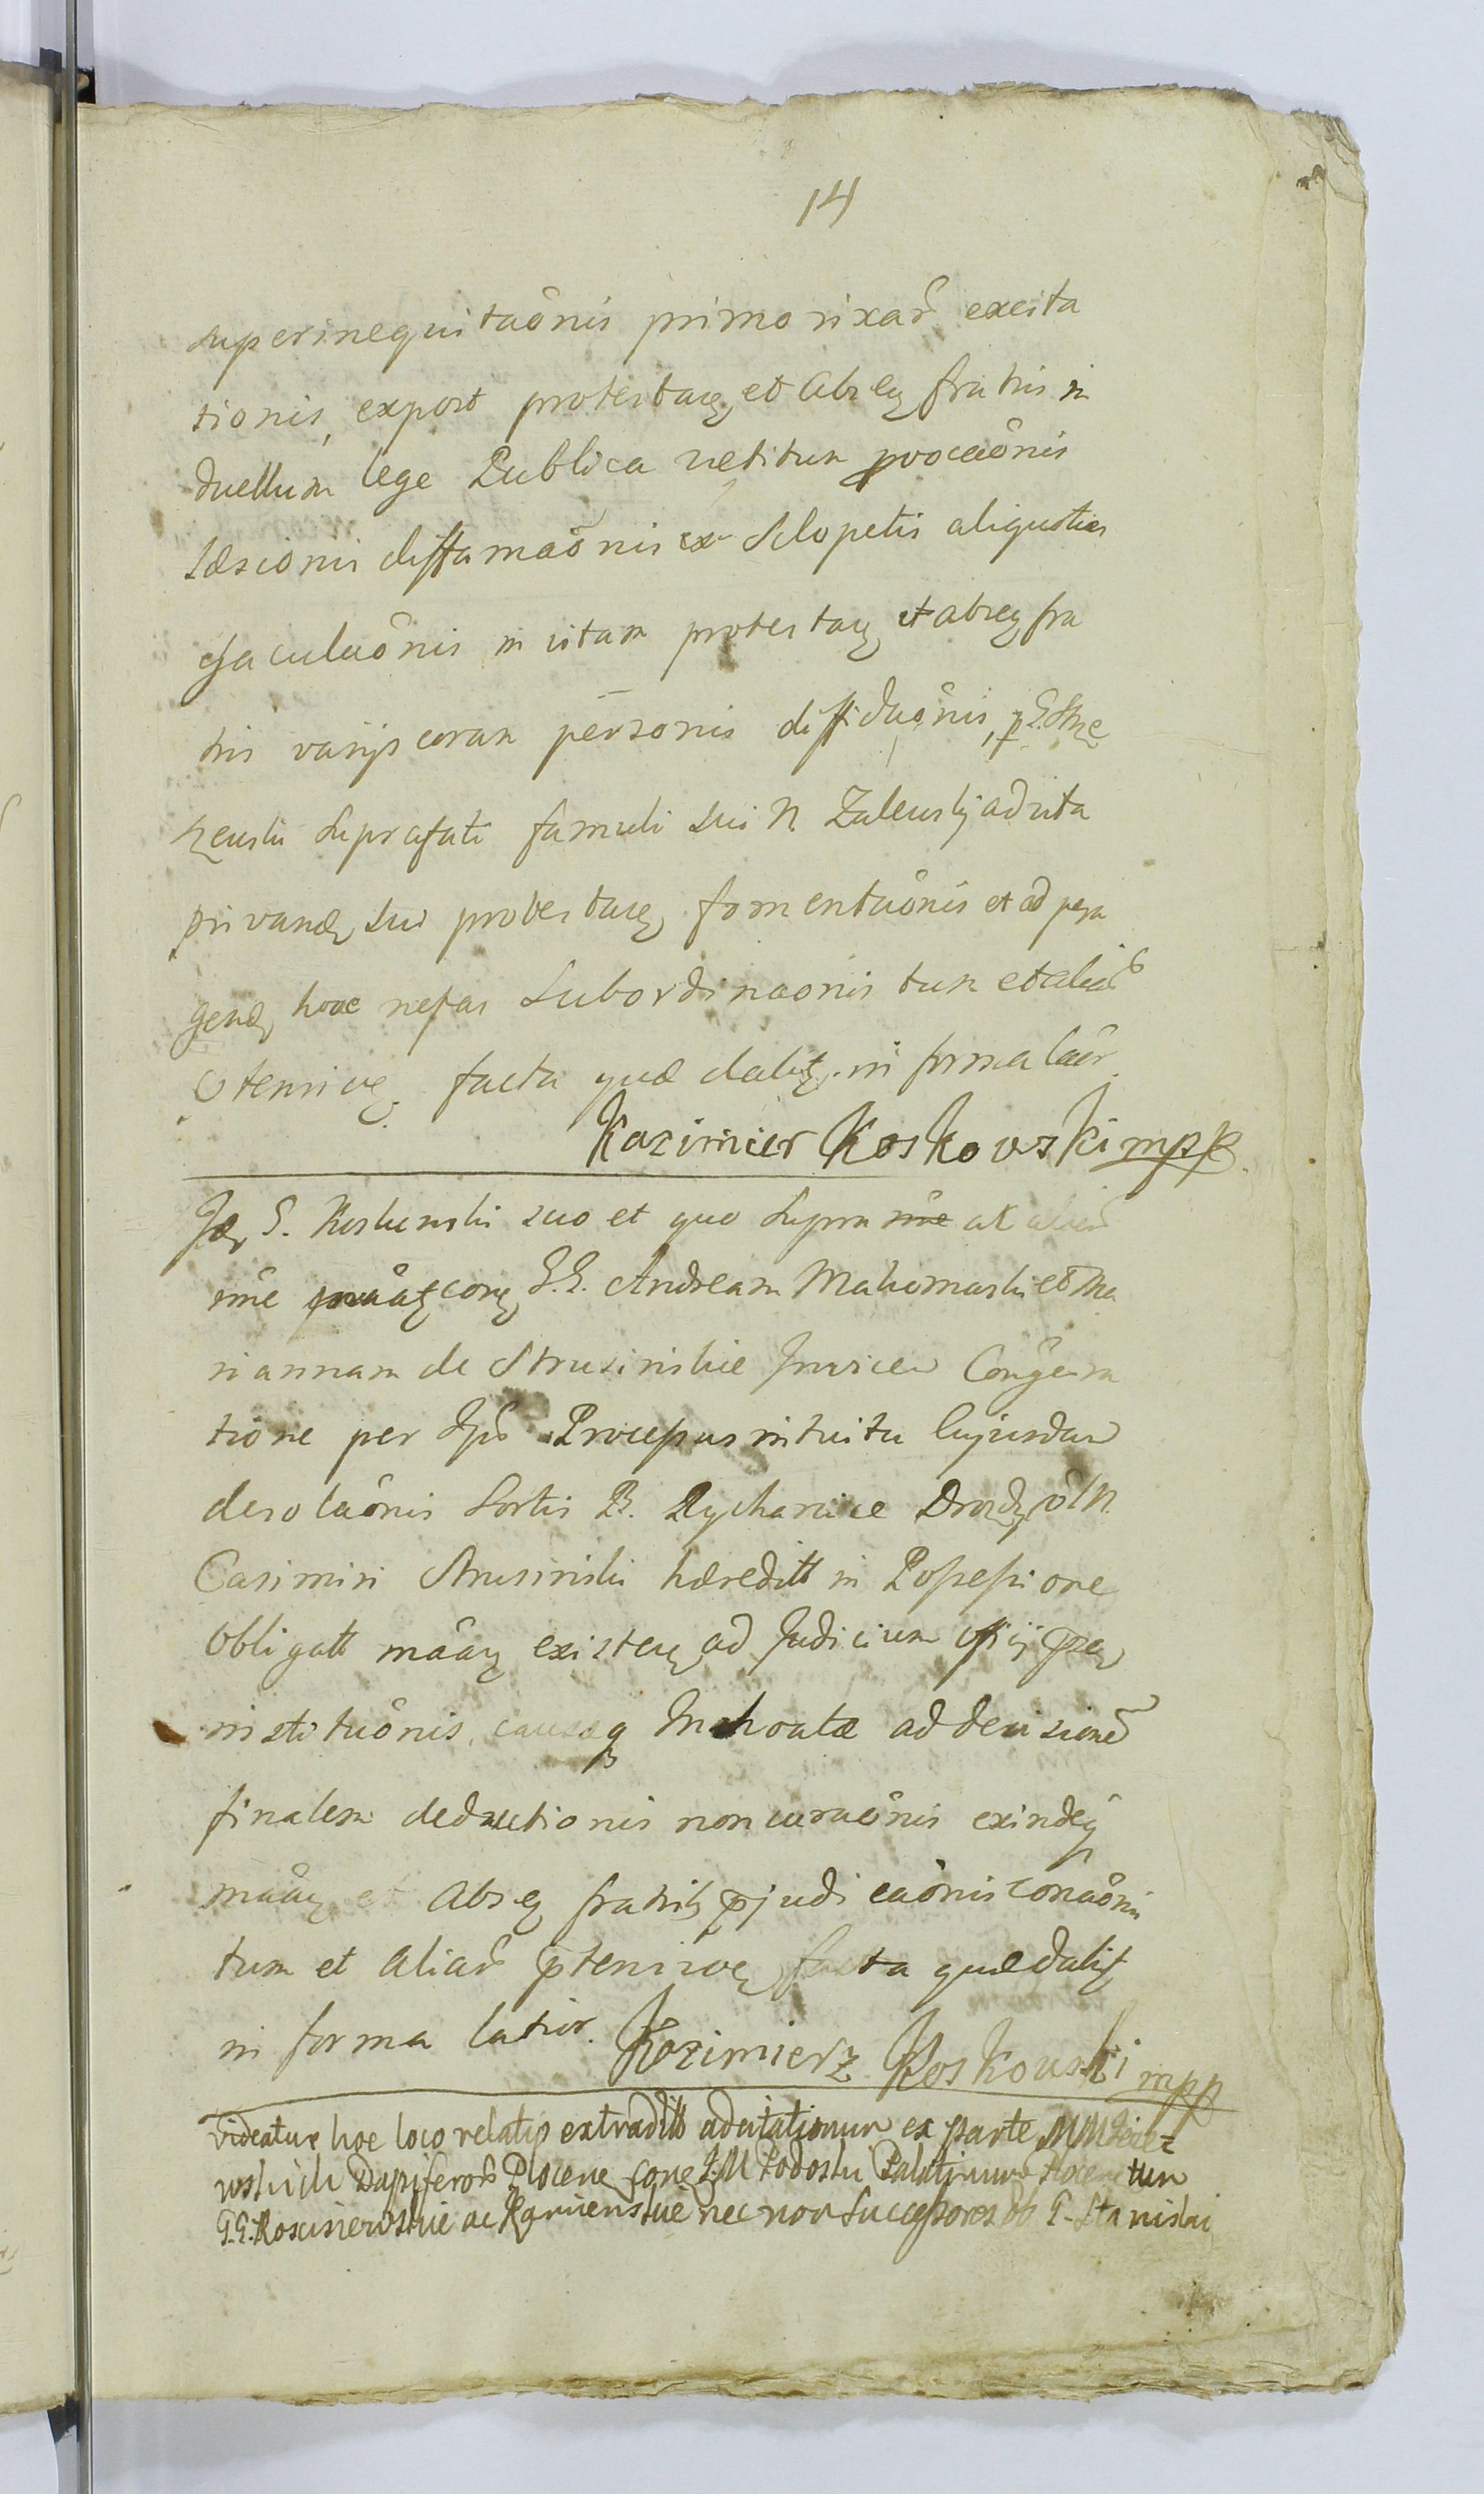 14
superinequitaonis primo rixar excita
tionis, expost protestaꝫ et abseꝫ fratris in
duellum lege Publica vetitum provocaonis
læsionis diffamaonis ex Sclopetis aliquoties
ejaculaonis in vitam protestaꝫ et absꝫ fra
tris varijs coram personis diffiduonis, p
suprafati famuli sui N Zaleuskj ad vita
privandꝫ sui protestaꝫ fomentaonis et ad pera
gendꝫ hocce nefas Subordinaonis tum et aliar
ptensivꝫ facta quæ dalitꝫ in forma laor
Kazimier Koskowski mpp
Idꝫ G. Koskowski suo et quo supra at aliar
nne conꝫ G.G. Andream Makomaski et Ma
riannam de Strusinskie Invicem Congera
tione per Ipsos Processus intuitu cujusdam
desolaonis Sortis B. Rycharcice Drozdꝫ olN
Casimiri Strusinski hæreditt in Possessione
obligatt maaꝫ existenꝫ ad Judicium offij
institutionis, causæqꝫ Inchoatæ ad decisione
finalem deductionis non curaonis exindeqꝫ
maaꝫ et abseꝫ fratris pjudicaonis conaonis
tum et aliar ptensivoꝫ facta quæ dalitꝫ
in forma latior. Kazimierz Koskowski mpp
Videatur hoc loco relatio extraditt adcitationum ex parte MM
Dapiferor Plocenꝫ conꝫ I.M Podoski Palatinum Plocenꝫ tum
G.G. Koscisiewskie ac Kamienskie nec non Successores ol G. Stanislai